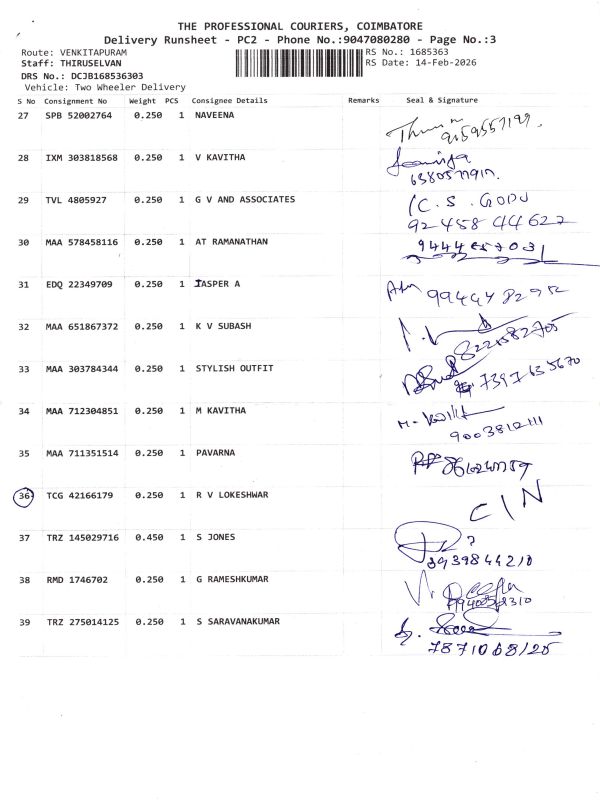 THE PROFESSIONAL COURIERS, COIMBATORE
Delivery Runsheet - PC2 - Phone No.:9047080280 - Page No.:3
Route: VENKITAPURAM RS No.: 1685363
Staff: THIRUSELVAN RS Date: 14-Feb-2026
DRS No.: DCJB168536303
Vehicle: Two Wheeler Delivery
S No Consignment No Weight PCS Consignee Details Remarks Seal & Signature
27 SPB 52002764 0.250 1 NAVEENA
28 IXM 303818568 0.250 1 V KAVITHA
29 TVL 4805927 0.250 1 G V AND ASSOCIATES
C. S. GOPU
92458 44627
30 MAA 578458116 0.250 1 AT RAMANATHAN
31 EDQ 22349709 0.250 1 JASPER A
32 MAA 651867372 0.250 1 K V SUBASH
33 MAA 303784344 0.250 1 STYLISH OUTFIT
7397635670
34 MAA 712304851 0.250 1 M KAVITHA
M. Kavitha
35 MAA 711351514 0.250 1 PAVARNA
36 TCG 42166179 0.250 1 R V LOKESHWAR
C/N
37 TRZ 145029716 0.450 1 S JONES
8939844210
38 RMD 1746702 0.250 1 G RAMESHKUMAR
39 TRZ 275014125 0.250 1 S SARAVANAKUMAR
7871068125